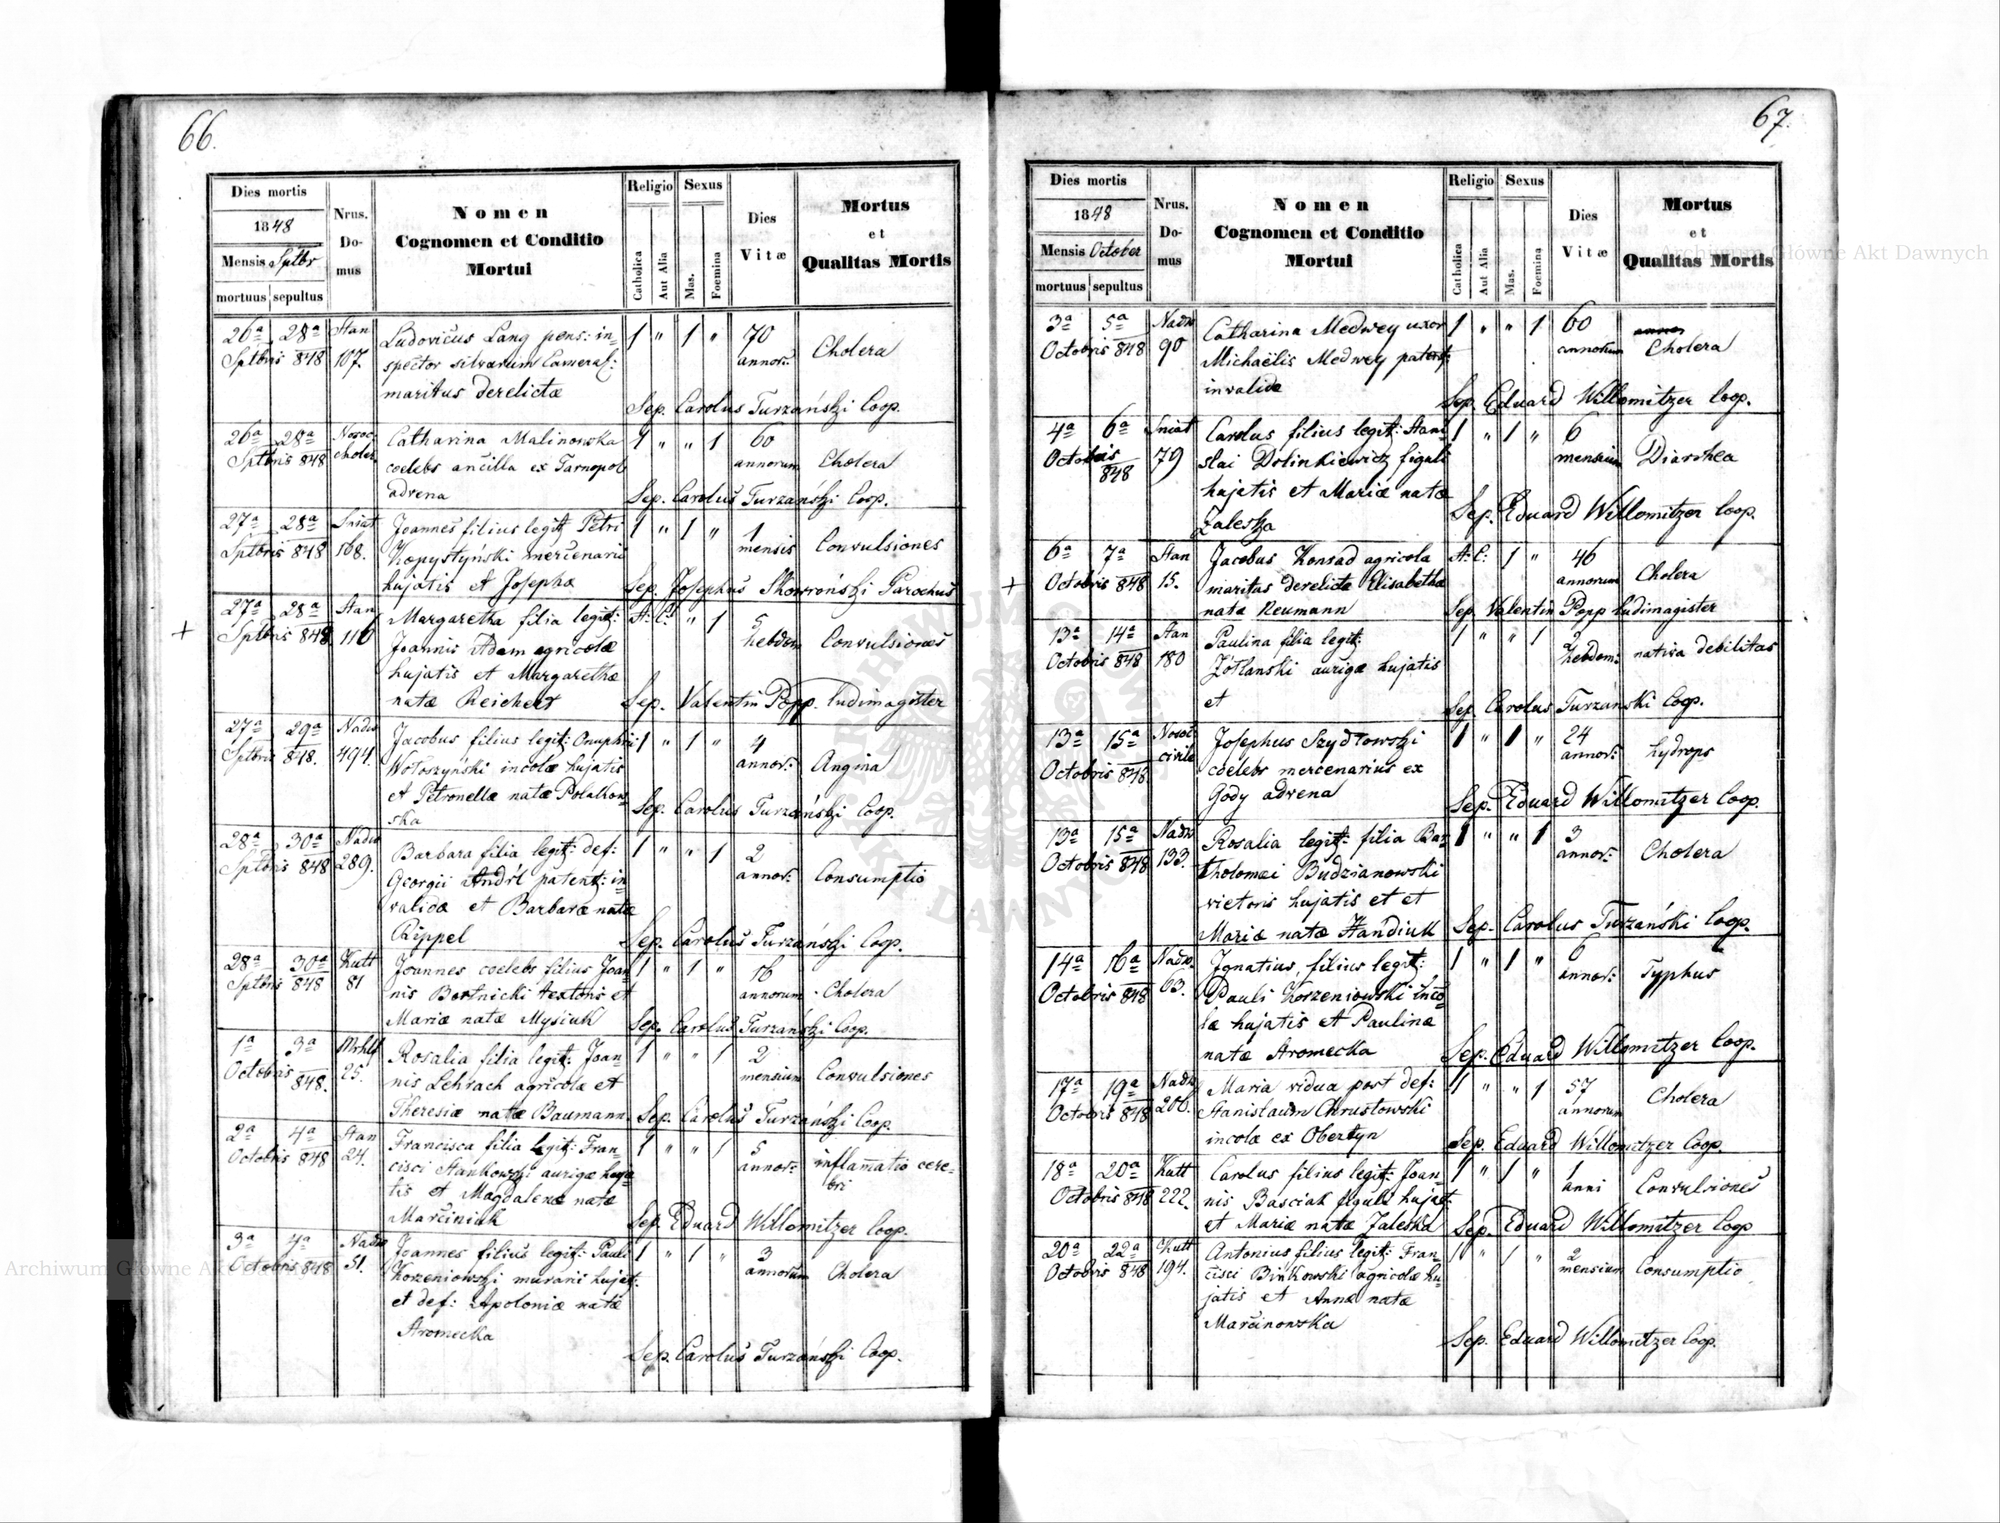 66.
Dies mortis
1848
Mensis Sptbr
mortuus sepultus
Nrus. Do-mus
Nomen
Cognomen et Conditio
Mortui
Religio
Catholica
Aut Alia
Sexus
Mas.
Foemina
Dies
Vitæ
Mortus
et
Qualitas Mortis
26a 28a Stan Ludovicus Lang pens: in- 1 " 1 " 70 Cholera
Sptbris 848 107. spector silvarum Cameral: annor:
maritus derelictæ
Sep. Carolus Turzański Coop.
26a 28a Nosoc: Catharina Malinowska 1 " " 1 60 Cholera
Sptbris 848 choler. coelebs ancilla ex Tarnopol annorum
advena Sep. Carolus Turzański Coop.
27a 28a Sniat Joannes filius legit: Petri 1 " 1 " 1 Convulsiones
Sptbris 848 168. Kopystyński mercenarii mensis
hujatis et Josephæ Sep. Josephus Skowroński Parochus
27a 28a Stan Margaretha filia legit: A: C: " 1 5 Convulsiones
+ Sptbris 848 116 Joannis Adam agricolæ hebdom
hujatis et Margarethæ
natæ Reichert Sep. Valentin Popp ludimagister
27a 29a Nadw Jacobus filius legit: Onuphrii 1 " 1 " 4 Angina
Sptbris 848. 494. Wołoszyński incolæ hujatis annor:
et Petronellæ natæ Polakow-
ska Sep. Carolus Turzański Coop.
28a 30a Nadw Barbara filia legit: def: 1 " " 1 2 Consumptio
Sptbris 848 289. Georgii André patent: in- annor:
validæ et Barbaræ natæ
Rippel Sep. Carolus Turzański Coop.
28a 30a Kutt Joannes coelebs filius Joan- 1 " 1 " 16 Cholera
Sptbris 848 81 nis Bortnicki textoris et annorum
Mariæ natæ Mysiuk Sep. Carolus Turzański Coop.
1a 3a Mrhlf Rosalia filia legit: Joan- 1 " " 1 2 Convulsiones
Octobris 848. 25. nis Lehrach agricolæ et mensium
Theresiæ natæ Baumann Sep. Carolus Turzański Coop.
2a 4a Stan Francisca filia legit: Fran- 1 " " 1 5 inflamatio cere-
Octobris 848 24. cisci Stankowski aurigæ huja- annor: bri
tis et Magdalenæ natæ
Marciniuk Sep. Eduard Willomitzer Coop.
3a 4a Nadw Joannes filius legit: Pauli 1 " 1 " 3 Cholera
Octobris 848 51. Korzeniowski murarii hujat: annorum
et def: Apoloniæ natæ
Aromecka
Sep. Carolus Turzański Coop.
67.
Dies mortis
1848
Mensis October
mortuus sepultus
Nrus. Do-mus
Nomen
Cognomen et Conditio
Mortui
Religio
Catholica
Aut Alia
Sexus
Mas.
Foemina
Dies
Vitæ
Mortus
et
Qualitas Mortis
3a 5a Nadw Catharina Medwey uxor 1 " " 1 60 Cholera
Octobris 848 90 Michaëlis Medwey patent: annorum
invalidæ Sep. Eduard Willomitzer Coop.
4a 6a Sniat Carolus filius legit: Stani- 1 " 1 " 6 Diarrhea
Octobris 848 79 slai Dolinkiewicz figuli mensium
hujatis et Mariæ natæ
Zaleska Sep. Eduard Willomitzer Coop.
6a 7a Stan Jacobus Konrad agricola A: C: 1 " 46 Cholera
+ Octobris 848 15. maritus derelictæ Elisabethæ annorum
natæ Neumann Sep. Valentin Popp ludimagister
13a 14a Stan Paulina filia legit: 1 " " 1 2 nativa debilitas
Octobris 848 180 Zółlanski aurigæ hujatis hebdom:
et Sep. Carolus Turzański Coop.
13a 15a Nosoc: Josephus Szydłowski 1 " 1 " 24 hydrops
Octobris 848 civile coelebs mercenarius ex annor:
Gody advena Sep. Eduard Willomitzer Coop.
13a 15a Nadw Rosalia legit: filia Bar- 1 " " 1 3 Cholera
Octobris 848 133. tholomæi Budzianowski annor:
vietoris hujatis et et
Mariæ natæ Handiuk Sep. Carolus Turzański Coop.
14a 16a Nadw. Ignatius, filius legit: 1 " 1 " 6 Typhus
Octobris 848 63. Pauli Korzeniowski inco- annor:
læ hujatis et Paulinæ
natæ Aromecka Sep. Eduard Willomitzer Coop.
17a 19a Nadw Maria vidua post def: 1 " " 1 57 Cholera
Octobris 848 206. Stanislaum Chrustowski annorum
incolæ ex Obertyn Sep. Eduard Willomitzer Coop.
18a 20a Kutt Carolus filius legit: Joan- 1 " 1 " 1 Convulsiones
Octobris 848 222. nis Basciak figuli hujat: anni
et Mariæ natæ Zaleska Sep. Eduard Willomitzer Coop
20a 22a Kutt Antonius filius legit: Fran- 1 " 1 " 2 Consumptio
Octobris 848 194. cisci Binkowski agricolæ hu- mensium
jatis et Annæ natæ
Marcinowska Sep. Eduard Willomitzer Coop.
Archiwum Główne Akt Dawnych